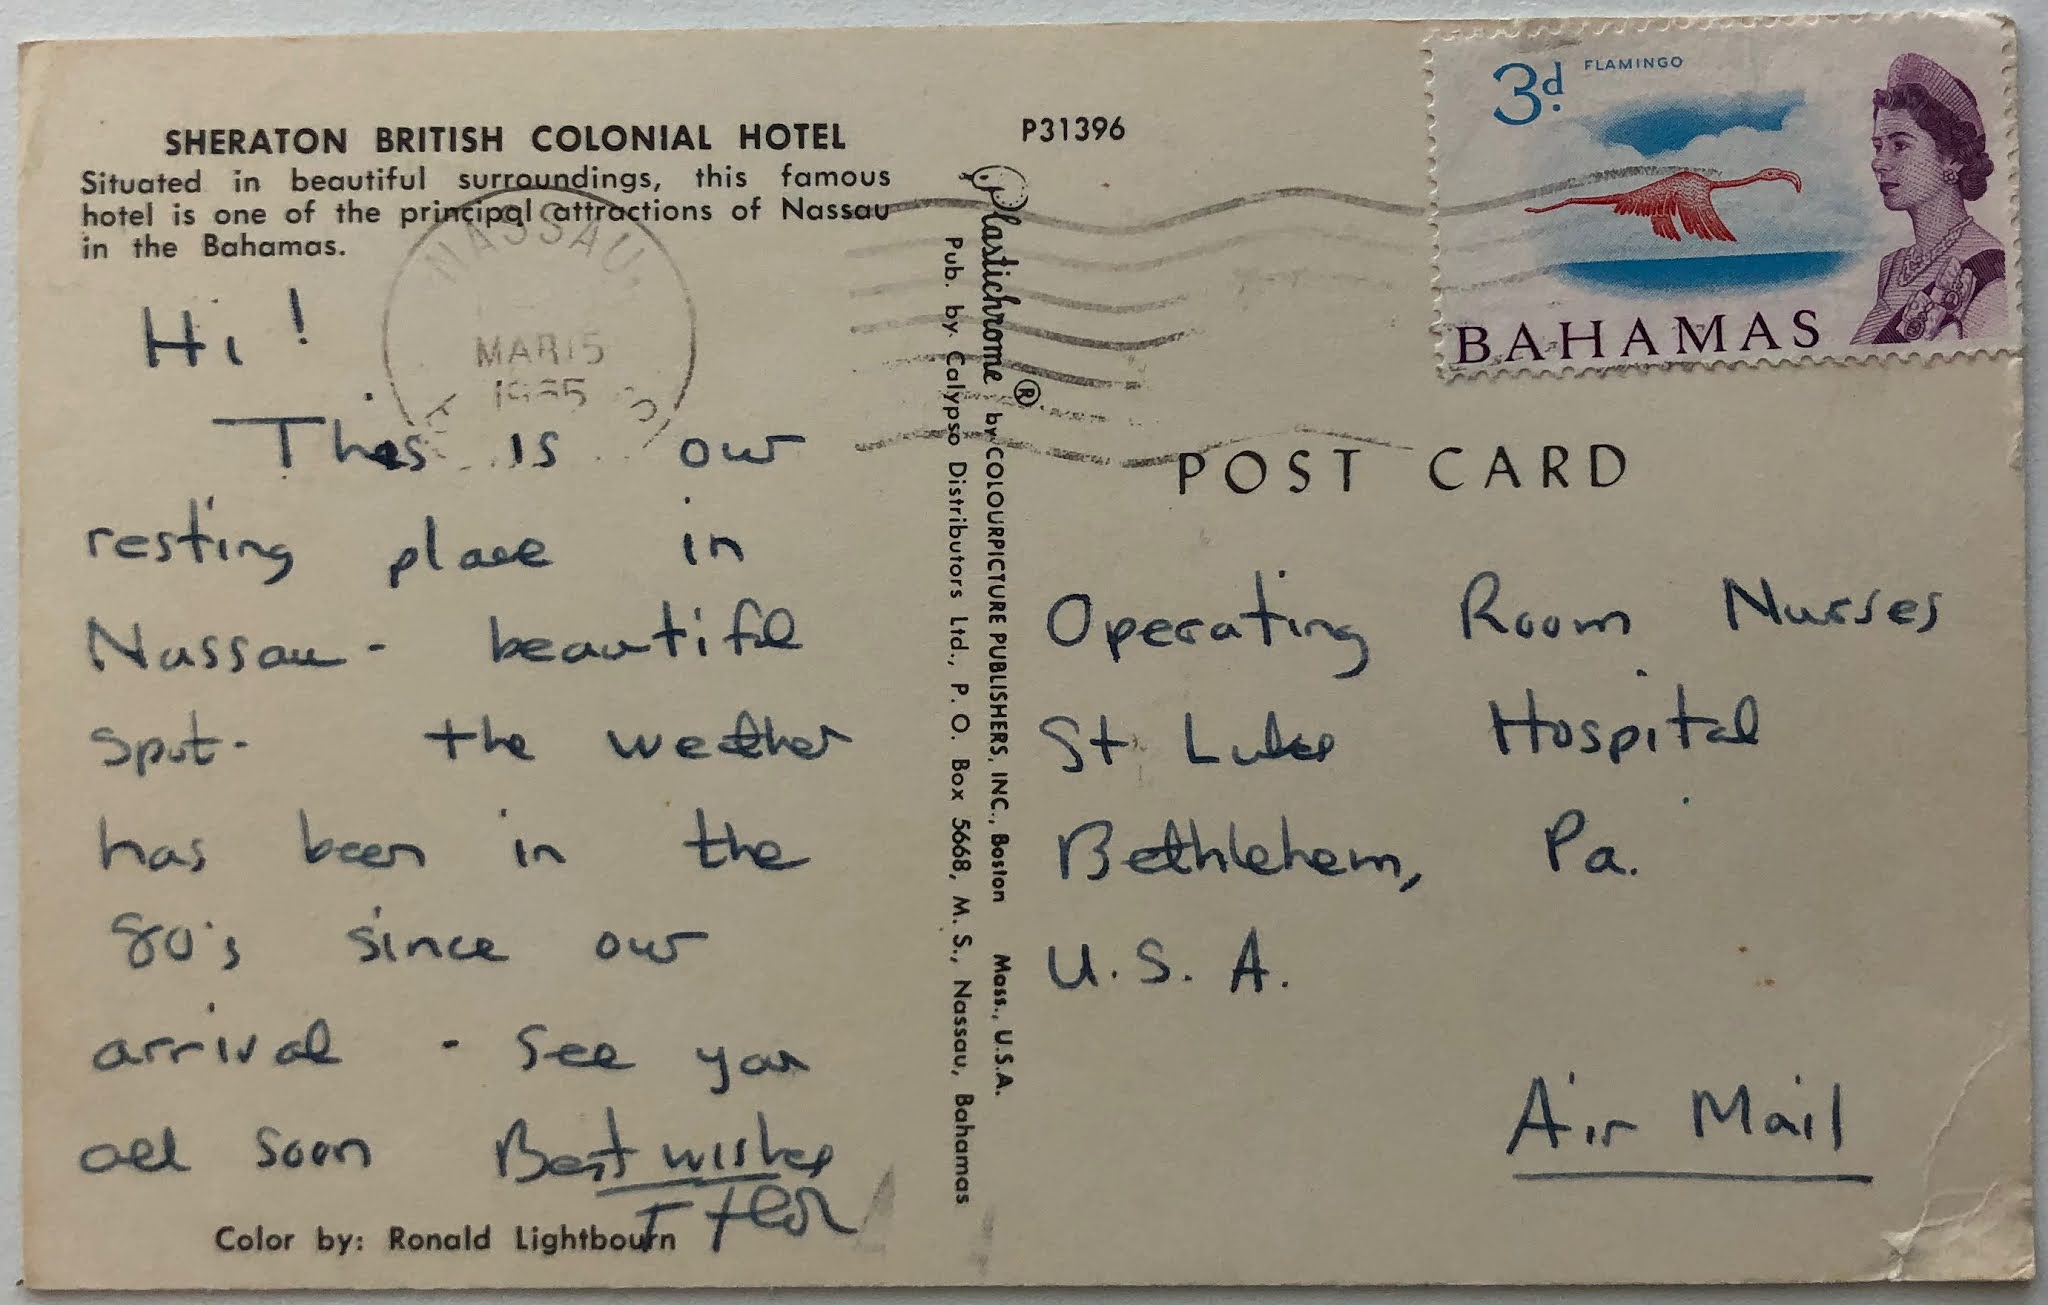 SHERATON BRITISH COLONIAL HOTEL
Situated in beautiful surroundings, this famous
hotel is one of the principal attractions of Nassau
in the Bahamas.
NASSAU,
MAR 15
Hi!
This is our
resting place in
Nassau - beautiful
spot - the weather
has been in the
80's since our
arrival - See you
all soon Best wishes
Color by: Ronald Lightbourn
Plastichrome ® by COLOURPICTURE PUBLISHERS, INC., Boston Mass., U.S.A.
Pub. by Calypso Distributors Ltd., P. O. Box 5668, M. S., Nassau, Bahamas
P31396
3d. FLAMINGO
BAHAMAS
POST CARD
Operating Room Nurses
St Lukes Hospital
Bethlehem, Pa.
U.S.A.
Air Mail